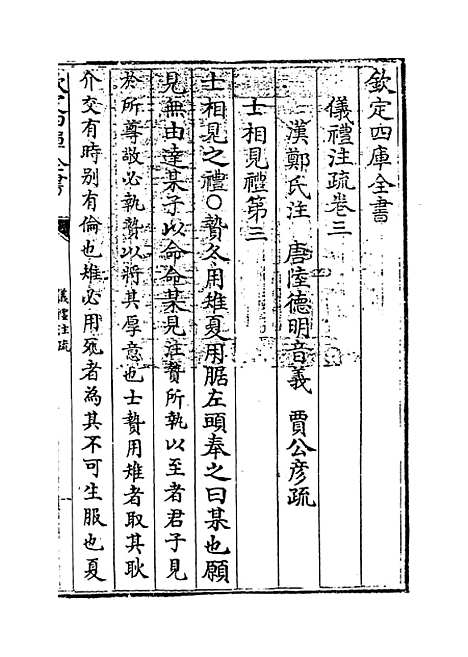 欽定四庫全書
儀禮注疏卷三
漢鄭氏注 唐陸德明音義 賈公彦疏
士相見禮第三
士相見之禮○贄冬用雉夏用腒左頭奉之曰某也願
見無由達某子以命命某見注贄所執以至者君子見
於所尊敬必執贄以將其厚意也士贄用雉者取其耿
介交有時别有倫也雉必用死者為其不可生服也夏
儀禮注疏